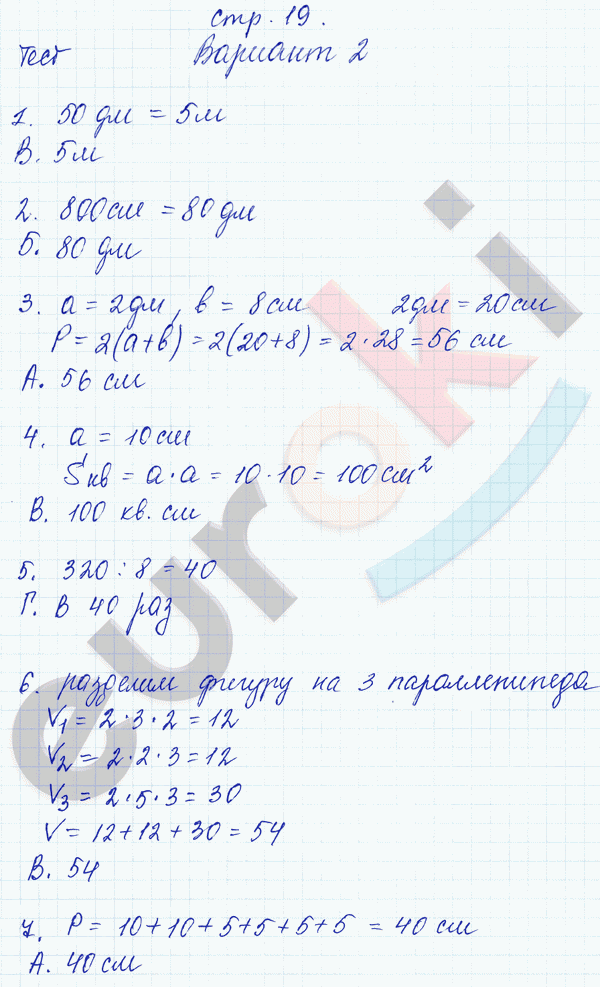 стр. 19.
Тест Вариант 2
1. 50 дм = 5 м
В. 5 м
2. 800 см = 80 дм
Б. 80 дм
3. a = 2 дм, b = 8 см 2 дм = 20 см
P = 2(a+b) = 2(20+8) = 2·28 = 56 см
А. 56 см
4. a = 10 см
Sкв = a·a = 10·10 = 100 см²
В. 100 кв. см
5. 320 : 8 = 40
Г. в 40 раз
6. разделим фигуру на 3 параллепипеда
V₁ = 2·3·2 = 12
V₂ = 2·2·3 = 12
V₃ = 2·5·3 = 30
V = 12 + 12 + 30 = 54
В. 54
7. P = 10 + 10 + 5 + 5 + 5 + 5 = 40 см
А. 40 см
euroki